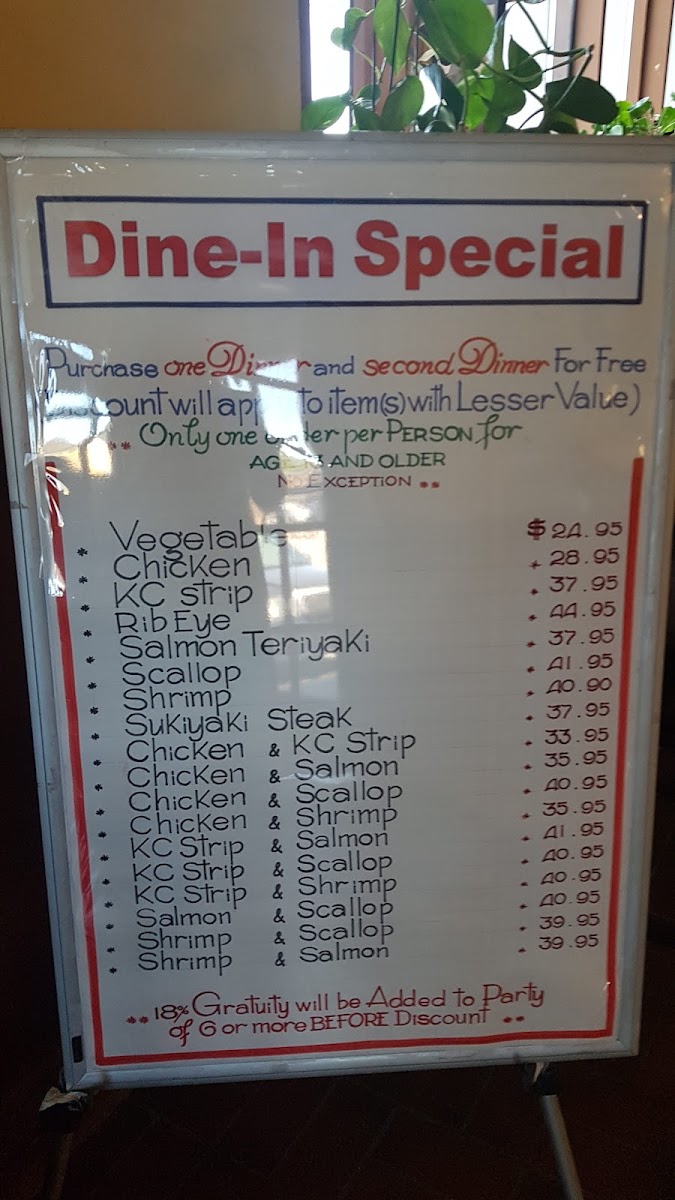 Dine-In Special
Purchase one and second Dinner For Free
will to item(s) with Lesser Value)
** Only one per PERSON for
AND OLDER
EXCEPTION **
* Vegetable $ 24.95
* Chicken 28.95
* KC Strip 37.95
* Rib Eye 44.95
* Salmon Teriyaki 37.95
* Scallop 41.95
* Shrimp 40.90
* Sukiyaki Steak 37.95
* Chicken & KC Strip 33.95
* Chicken & Salmon 35.95
* Chicken & Scallop 40.95
* Chicken & Shrimp 35.95
* KC Strip & Salmon 41.95
* KC Strip & Scallop 40.95
* KC Strip & Shrimp 40.95
* Salmon & Scallop 40.95
* Shrimp & Scallop 39.95
* Shrimp & Salmon 39.95
** 18% Gratuity will be Added to Party
of 6 or more BEFORE Discount **